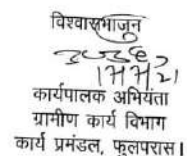 विश्वासभाजन
कार्यपालक अभियंता
ग्रामीण कार्य विभाग
कार्य प्रमंडल, फुलपरास।